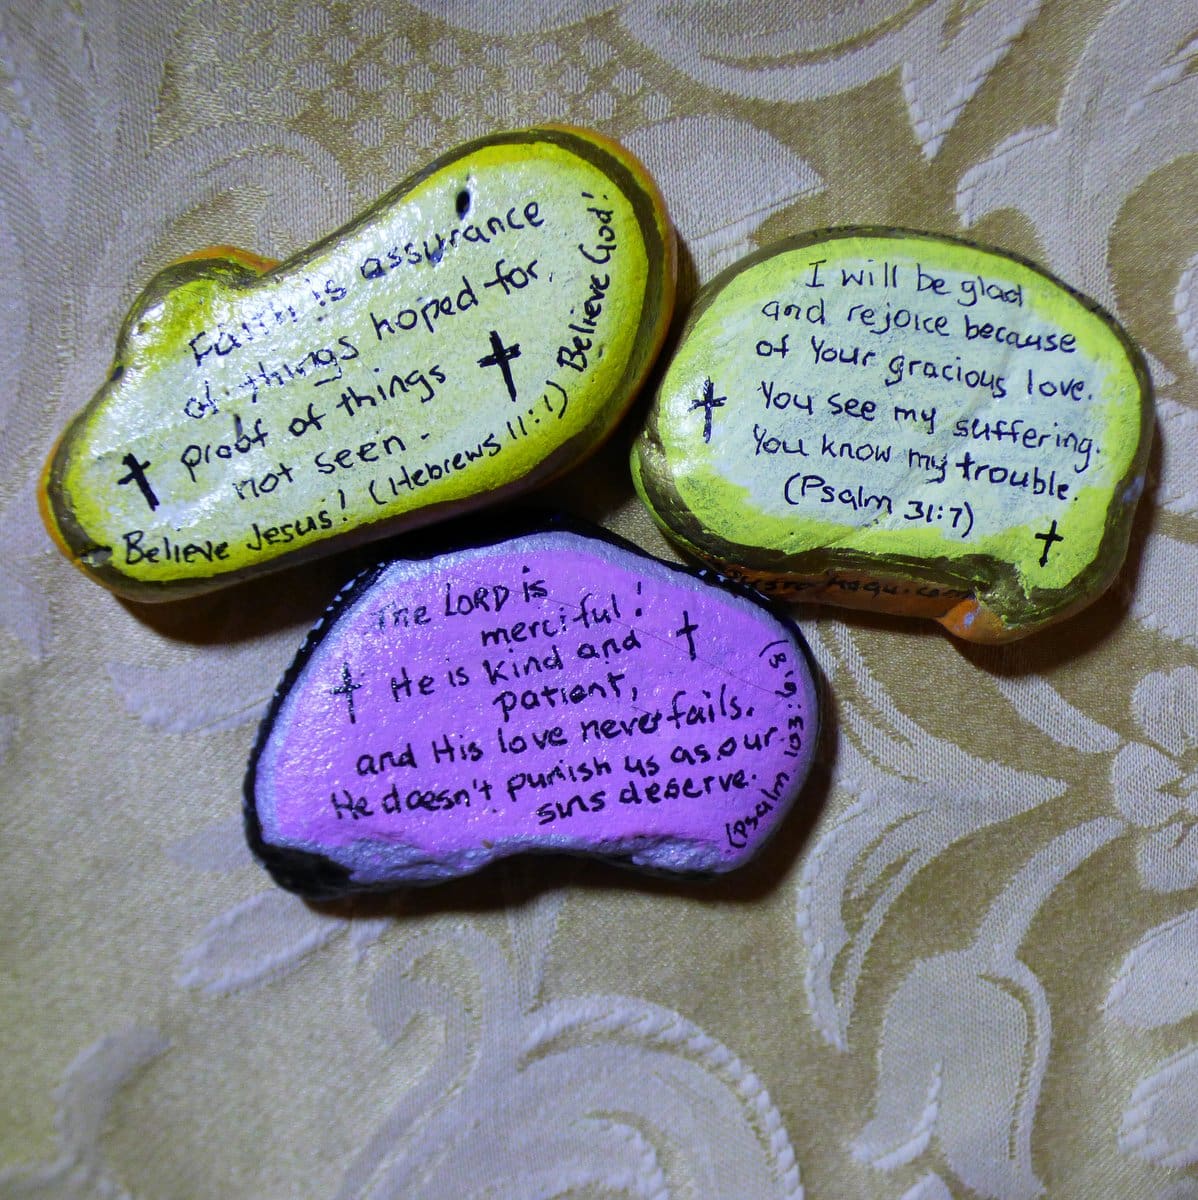 Faith is assurance
of things hoped for,
proof of things
not seen.
Believe Jesus! (Hebrews 11:1) Believe God!
I will be glad
and rejoice because
of Your gracious love.
You see my suffering.
You know my trouble.
(Psalm 31:7)
The LORD is
merciful!
He is kind and
patient,
and His love never fails.
He doesn't punish us as our
sins deserve.
(Psalm 103: